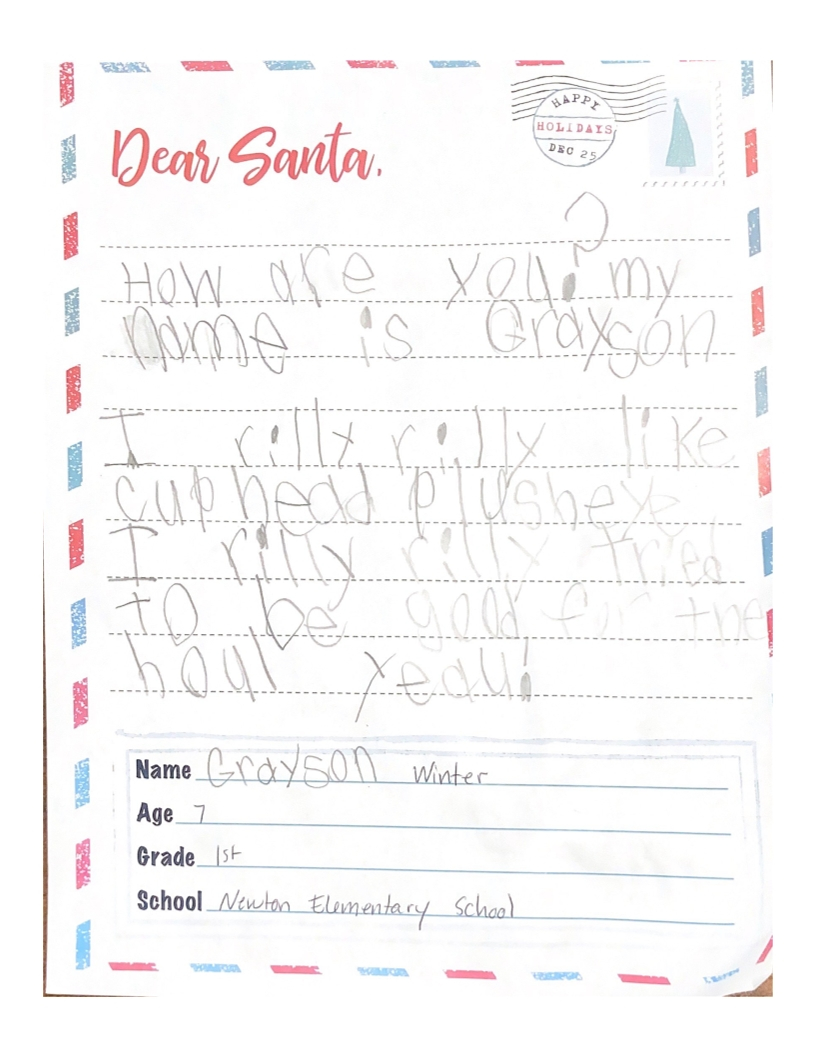 HAPPY
HOLIDAYS
DEC 25
Dear Santa,
How are you? my
name is Grayson
I rilly rilly like
cuphead plusheye
I rilly rilly tried
to be good for the
houl yeau!
Name Grayson Winter
Age 7
Grade 1st
School Newton Elementary School